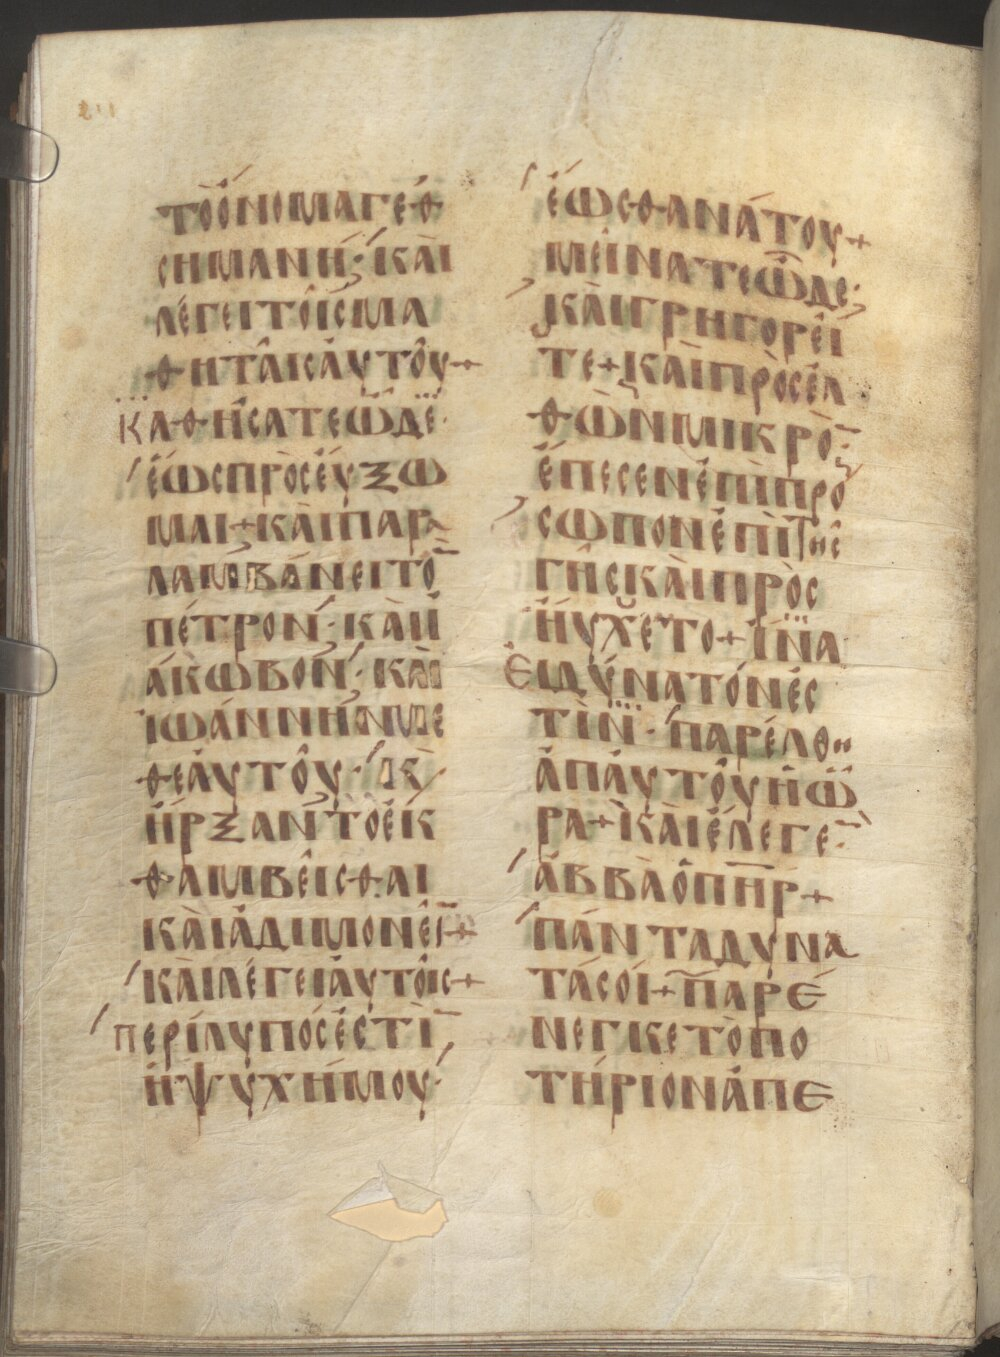 τὸ ὄνομα γεθ
σημανή· καὶ
λέγει τοῖς μα
θηταῖς αὐτοῦ +
Καθήσατε ὧδε·
ἕως προσεύξω
μαι + καὶ παρα
λαμβάνει τὸ̅
πέτρον· καὶ ἰ
άκωβον· καὶ
ἰωάννην με
θ' ἑαυτοῦ· κ(αὶ)
ἤρξαντο ἐκ
θαμβεῖσθαι
καὶ ἀδιμονεῖ̅ +
καὶ λέγει αὐτοῖς +
περίλυπός ἐστι̅
ἡ ψυχή μου·
ἕως θανάτου +
μείνατε ὧδε·
καὶ γρηγορεῖ
τε + καὶ προσελ
θὼν μικρὸ̅·
ἔπεσεν ἐπὶ πρό
σωπον ἐπὶ τῆς
γῆς καὶ προσ
ηύχετο + ἵνα
Εἰ δύνατόν ἐσ
τιν· παρέλθη
ἀπ' αὐτοῦ ἡ ὥ
ρα + καὶ ἔλεγε̅·
ἀββὰ ὁ π̅η̅ρ̅ +
πάντα δυνα
τά σοι + παρέ
νεγκε τὸ πο
τήριον ἀπ' ἐ